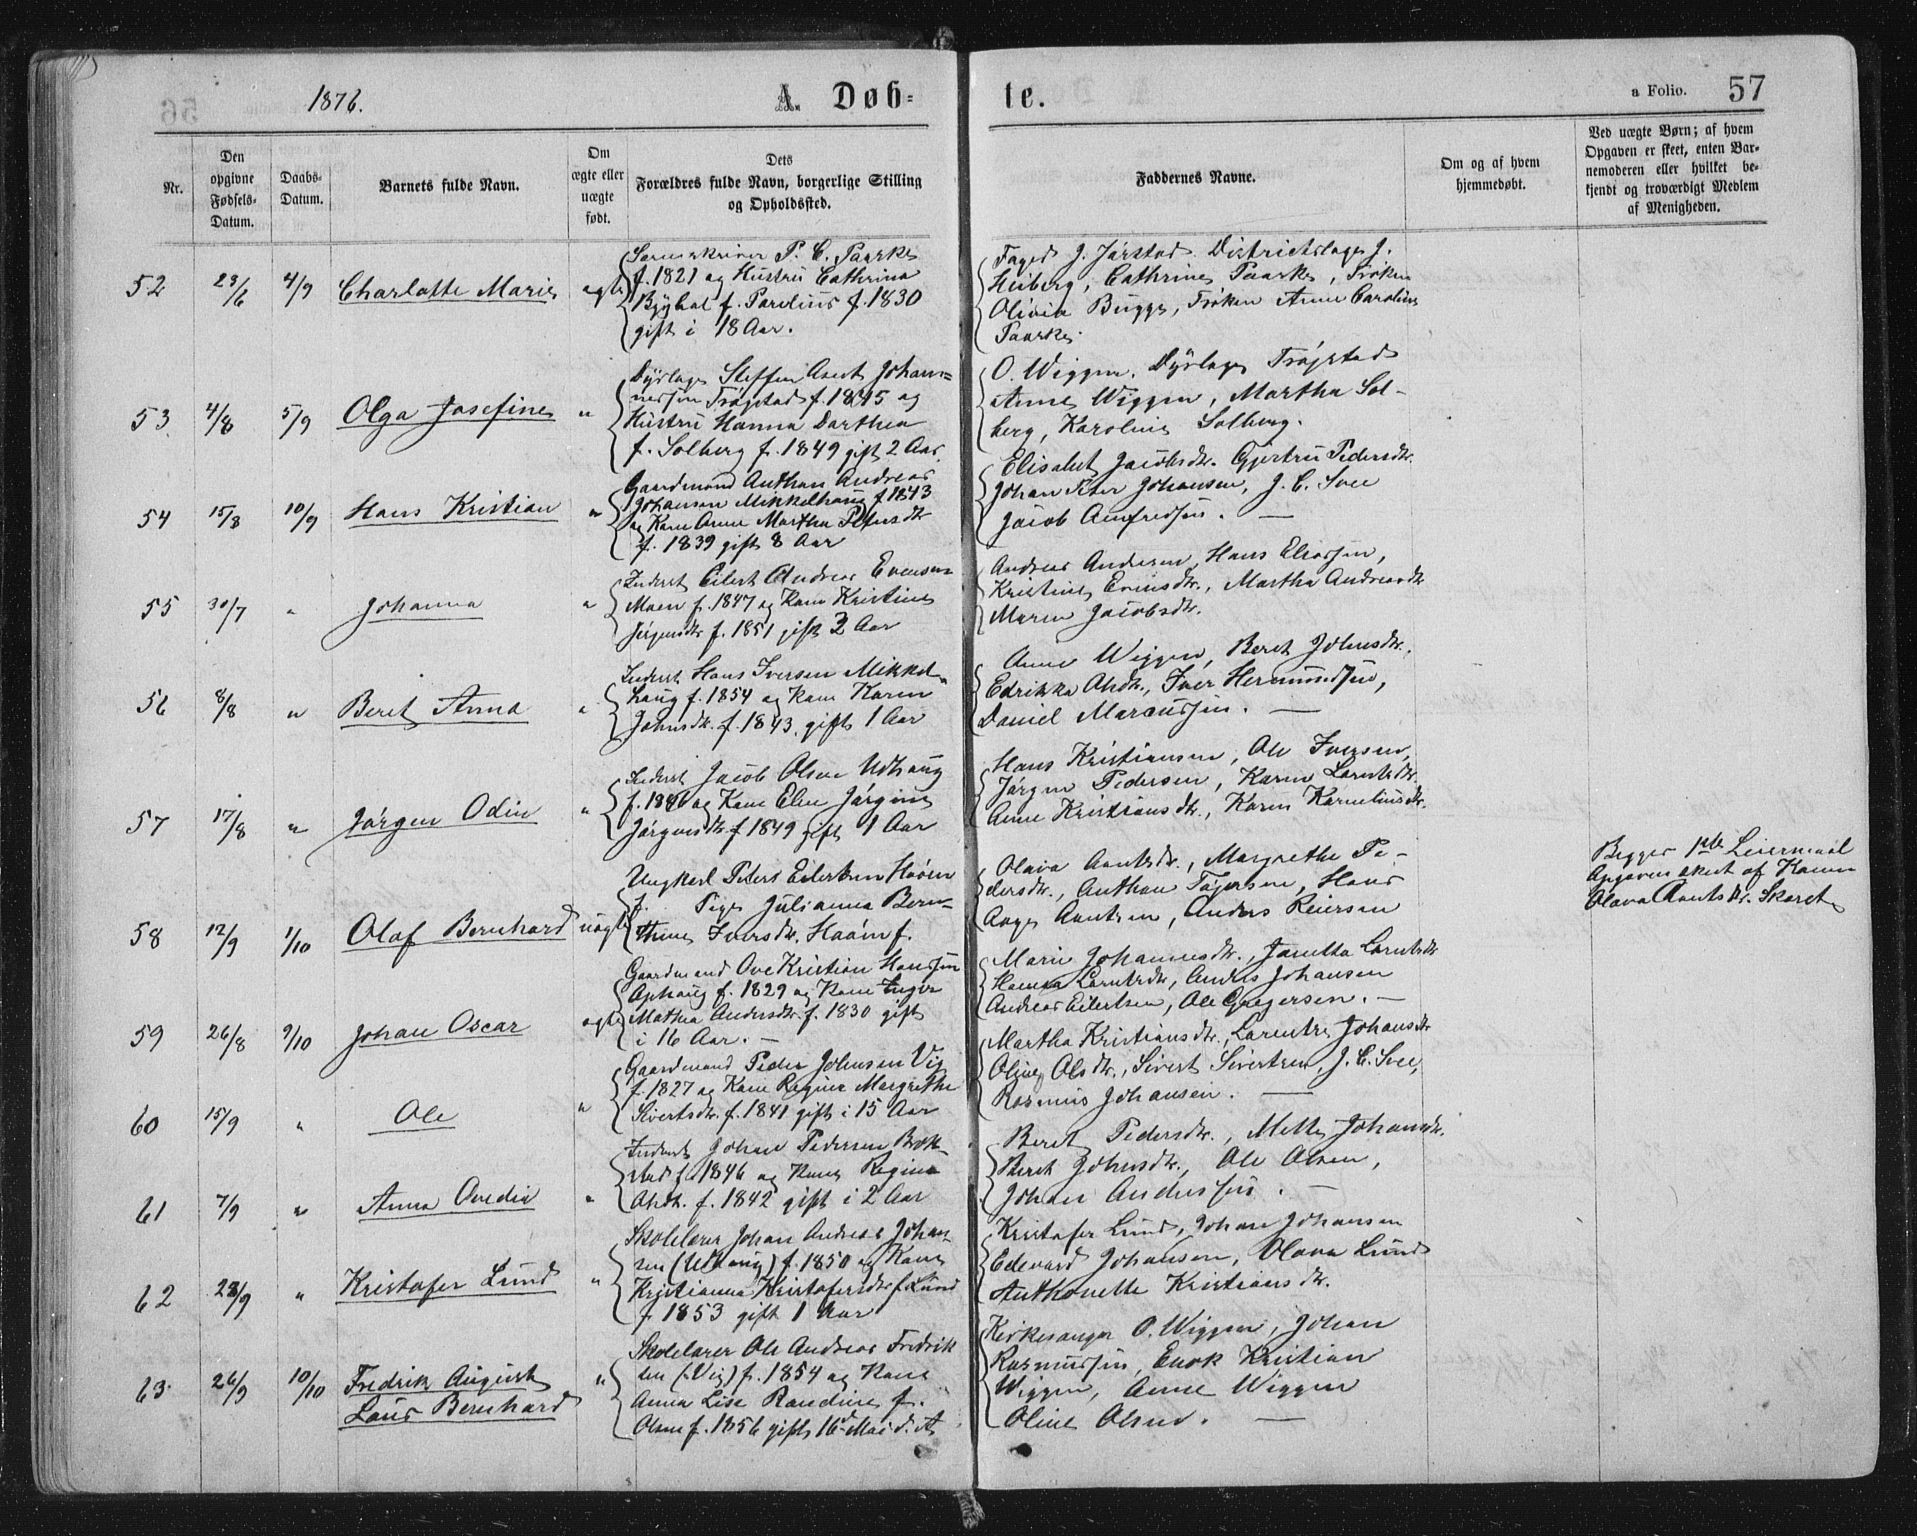 1876.
A. Døb-
te.
a Folio. 57
Nr.
Den
opgivne
Fødsels-
Datum.
Daabs-
Datum.
Barnets fulde Navn.
Om
ægte eller
uægte
født.
Dets
Forældres fulde Navn, borgerlige Stilling
og Opholdssted.
Faddernes Navne.
Om og af hvem
hjemmedøbt.
Ved uægte Børn; af hvem
Opgaven er skeet, enten Bar-
nemoderen eller hvilket be-
kjendt og troværdigt Medlem
af Menigheden.
52 23/6 4/9 Charlotte Marie ægte
Sorenskriver P. C. Paaske
f. 1821 og Hustru Cathrina
f. 1830
gift i 18 Aar.
Foged J. Jarstad Districtslæge J.
Heiberg, Cathrine Paaske, Frøken
Olivia Bugge, Frøken Anne Caroline
Paaske
53 4/8 5/9 Olga Josefine "
Dyrlæge Steffen Johan-
nesen Trøgstad f. 1845 og
Hustru Hanna Dorthea
f. Solberg f. 1849 gift 2 Aar.
O. Wiggen, Dyrlæge Trøgstad
Anne Wiggen, Martha Sol-
berg, Karoline Solberg.
54 15/8 10/9 Hans Kristian "
Gaardmand Anthon Andreas
Johansen Mikkelhaug f. 1843
og Kone Anne Martha Petersdtr
f. 1839 gift 8 Aar
Elisabet Jacobsdtr. Gjertru Pedersdtr.
Johan Peter Johansen, J. C. Svee
Jacob Arnfredsen. —
55 30/7 " Johanna "
Inderst Eilert Andreas Evensen
Moen f. 1847 og Kone Kristine
Jørgensdtr f. 1851 gift 3 Aar
Andreas Andersen, Hans Eliassen,
Kristine Evensdtr., Martha Andreasdtr
Maren Jacobsdtr.
56 8/8 " Beret Anna "
Inderst Hans Iversen Mikkel-
haug f. 1854 og Kone Karen
Johnsdtr. f. 1843. gift 1 Aar
Anne Wiggen, Beret Johnsdtr.
Edrikka Olsdtr., Iver Hermundsen,
Daniel Marcussen. —
57 17/8 " Jørgen Odin "
Inderst Jacob Olsen Udhaug
f. 1846 og Kone Elen Jørgine
Jørgensdtr f. 1849 gift 1 Aar
Hans Kristiansen, Ole Iversen,
Jørgen Pedersen, Karen Larntsdtr.
Anne Kristiansdtr., Karen Korneliusdtr.
58 12/9 1/10 Olaf Bernhard uægte
Ungkarl Peter Eilertsen Hoøen
f. Pige Julianna Bern-
thine Iversdtr. Hoøen f.
Olava Arntsdtr., Margrethe Pe-
dersdtr., Anthon Tøgersen, Hans
Aage Arntsen, Anders Reiersen
Begges 1ste Leiermaal
Opgaven skeet af Konen
Olava Arntsdtr. Skaret
59 26/8 1/10 Johan Oscar ægte
Gaardmand Ove Kristian Hansen
Ophaug f. 1829 og Kone Inger
Mathea Andersdtr. f. 1830 gift
i 16 Aar. —
Marie Johannesdtr., Janetta Larntsdtr
Hanna Larntsdtr, Anders Johansen
Andreas Eilertsen, Ole Gregersen. —
60 15/9 " Ole "
Gaardmand Peder Johnsen Vig
f. 1827 og Kone Regine Margrethe
Sivertsdtr. f. 1841 gift i 15 Aar
Martha Kristiansdtr., Larentze Johansdtr
Oline Olsdtr., Sivert Sivertsen, J. C. Svee,
Rasmus Johansen. —
61 7/9 " Anna Ovedia "
Inderst Johan Pedersen Brek-
stad f. 1846 og Kone Regina
Olsdtr. f. 1842 gift i 2 Aar
Beret Pedersdtr., Mette Johansdtr.
Beret Johnsdtr., Ole Olsen,
Johan Andersen. —
62 23/9 " Kristofer Lund "
Skolelærer Johan Andreas Johan-
sen (Udhaug) f. 1850 og Kone
Kristianna Kristofersdtr f. Lund
f. 1853 gift 1 Aar
Kristofer Lund, Johan Johansen
Edevard Johansen, Olava Lund
Anthonette Kristiansdtr.
63. 26/9 10/10 Fredrik August
Laur Bernhard "
Skolelærer Ole Andreas Fredrik
sen (Vig) f. 1854 og Kone
Anna Lise Randine f.
Olsen f. 1856 gift 16de Mai d. A
Kirkesanger O. Wiggen, Johan
Rasmussen, Enok Kristian
Wiggen, Anne Wiggen
Oline Olsen. —